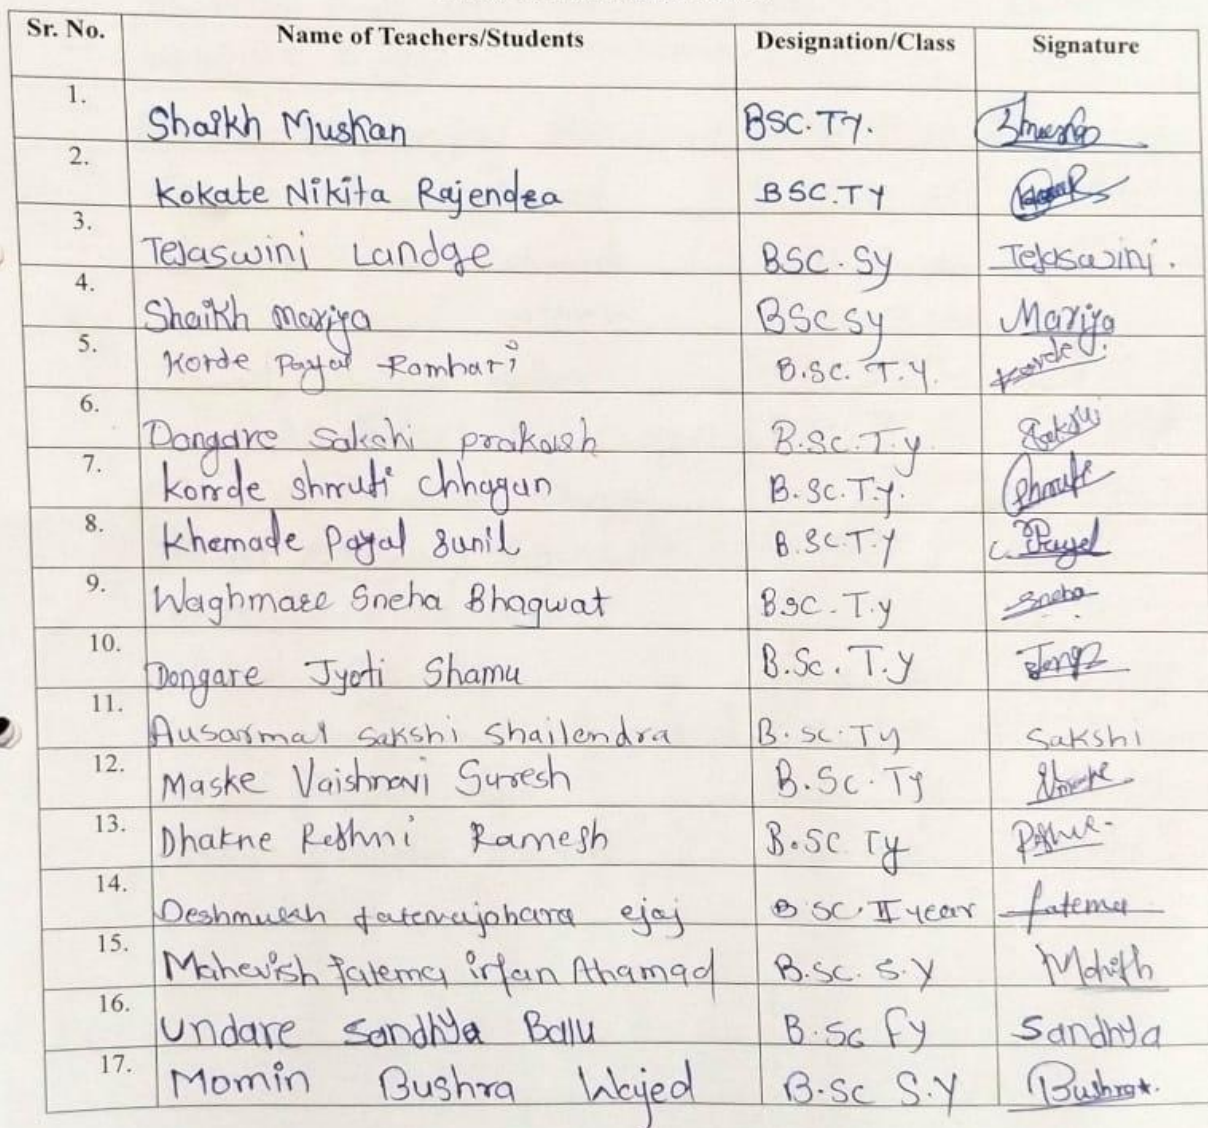 Sr. No. Name of Teachers/Students Designation/Class Signature
1. Shaikh Muskan BSC.TY.
2. Kokate Nikita Rajendra BSC.TY
3. Tejaswini Landge BSC.Sy Tejaswini.
4. Shaikh Mariya BSC Sy Mariya
5. Korde Payal Ramhari B.SC. T.Y. Korde
6. Dongare Sakshi prakash B.Sc.T.y. Sakshi
7. korde shruti Chhagan B.Sc.T.y.
8. Khemade Payal sunil B.Sc.T.y Payal
9. Waghmare Sneha Bhagwat B.Sc.T.y Sneha
10. Dongare Jyoti Shamu B.Sc.T.y
11. Ausarmal sakshi Shailendra B.sc.Ty Sakshi
12. Maske Vaishnavi Suresh B.Sc.Ty
13. Dhakne Reshni Ramesh B.SC Ty
14. Deshmukh fatemajohara ejaj B SC. II year fatema
15. Mahevish fatema irfan Ahamad B.sc. S.Y
16. Undare Sandhya Balu B.Sc Fy Sandhya
17. Momin Bushra Wajed B.Sc S.Y Bushra